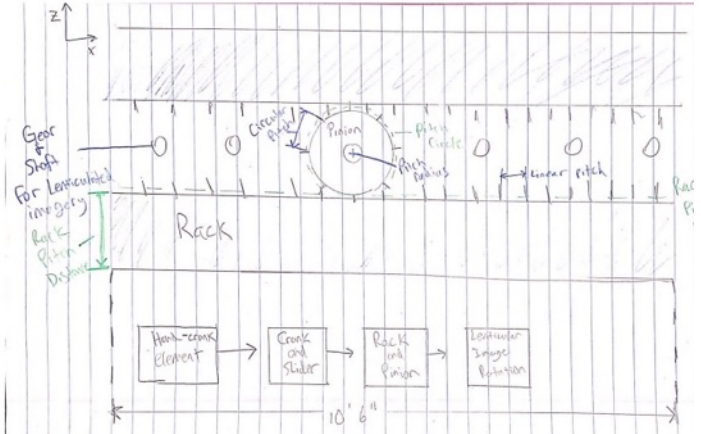 Z
X
Gear
+
Shaft
For Lenticulated
imagery
Circular
Pitch
Pinion
Pitch
Circle
Pitch
Radius
Linear pitch
Rack
Pitch
Distance
Rack
Hand-crank
Element
Crank
and
Slider
Rack
and
Pinion
Lenticular
Image
Rotation
10' 6"